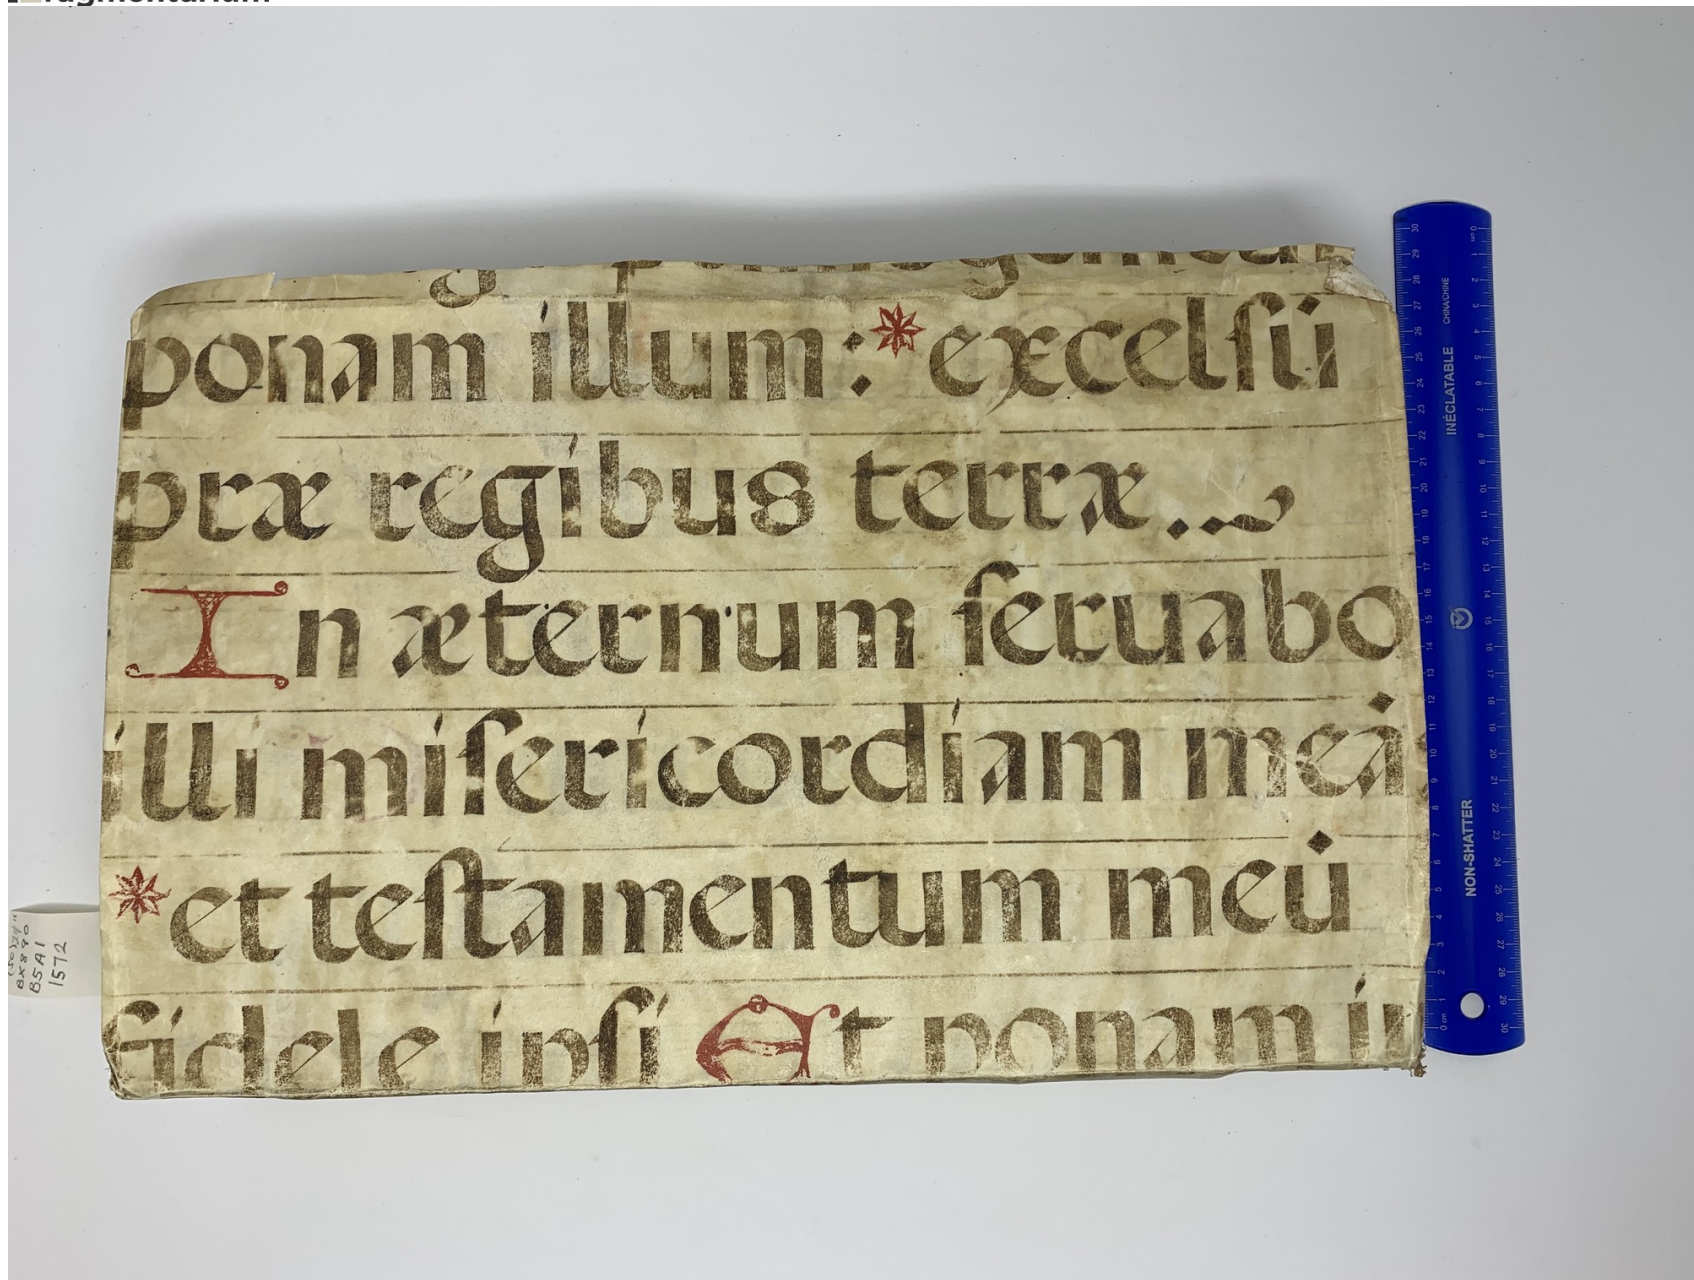 ponam illum: * excelsū
præ regibus terræ..
In æternum ſeruabo
illi miſericordiam meā
* et teſtamentum meū
fidele ipſi Et ponam in
INÉCLATABLE CHINA/CHINE
NON-SHATTER
BX890
B5A1
1572